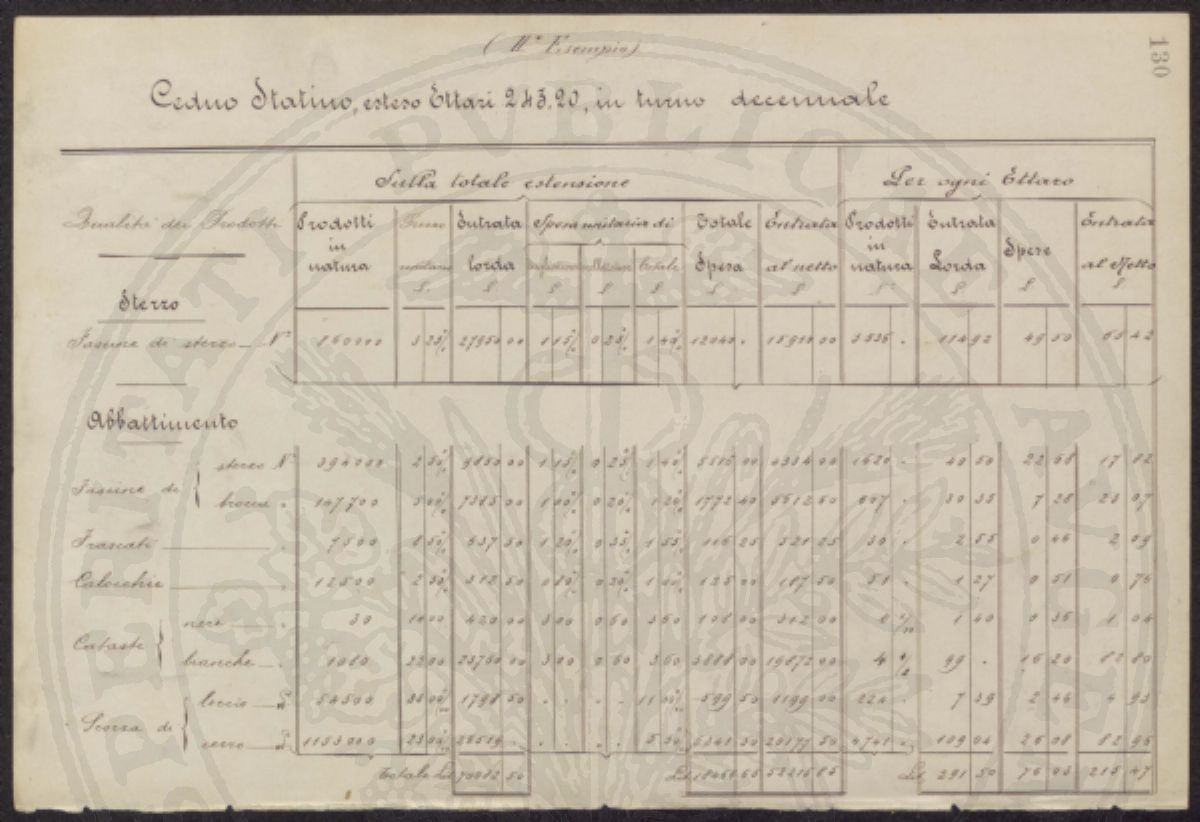 130
(IIº Esempio)
Ceduo Statino, esteso Ettari 243.20, in turno decennale
Sulla totale estensione Per ogni Ettaro
Qualità dei Prodotti Prodotti in natura unitario £ Entrata lorda £ Spesa unitaria di Totale £ Totale Spesa £ Entrata al netto £ Prodotti in natura Entrata Lorda £ Spese £ Entrata al Netto £
Sterzo
Fascine di sterzo Nº 860000 3 25 27950 00 1 15 0 25 1 40 12040 . 15910 00 3536 . 114 92 49 50 65 42
Abbattimento
Fascine di sterzo Nº 394000 2 50 9850 00 1 15 0 25 1 40 5516 00 4334 00 1620 . 40 50 22 68 17 82
147700 5 00 7385 00 1 00 0 20 1 20 1772 40 5612 60 607 . 30 35 7 28 23 07
Frascati 7500 8 50 637 50 1 20 0 35 1 55 116 25 521 25 30 . 2 55 0 46 2 09
12500 2 50 312 50 0 80 0 20 1 00 125 00 187 50 51 . 1 27 0 51 0 76
Cataste nere 30 14 00 420 00 3 00 0 60 3 60 108 00 312 00 1 40 0 36 1 04
bianche 1080 22 00 23760 00 3 00 0 60 3 60 3888 00 19872 00 4 99 . 16 20 82 80
Scorza di leccio 54500 33 00 1798 50 . . 11 00 599 50 1199 00 224 . 7 39 2 46 4 93
cerro 1153000 23 00 26519 . . . 5 50 6341 50 20177 50 4741 . 109 04 26 08 82 96
Totale Lit 70682 50 Lit 18466 65 52215 85 Lit 291 50 76 03 215 47
PUBLICAE